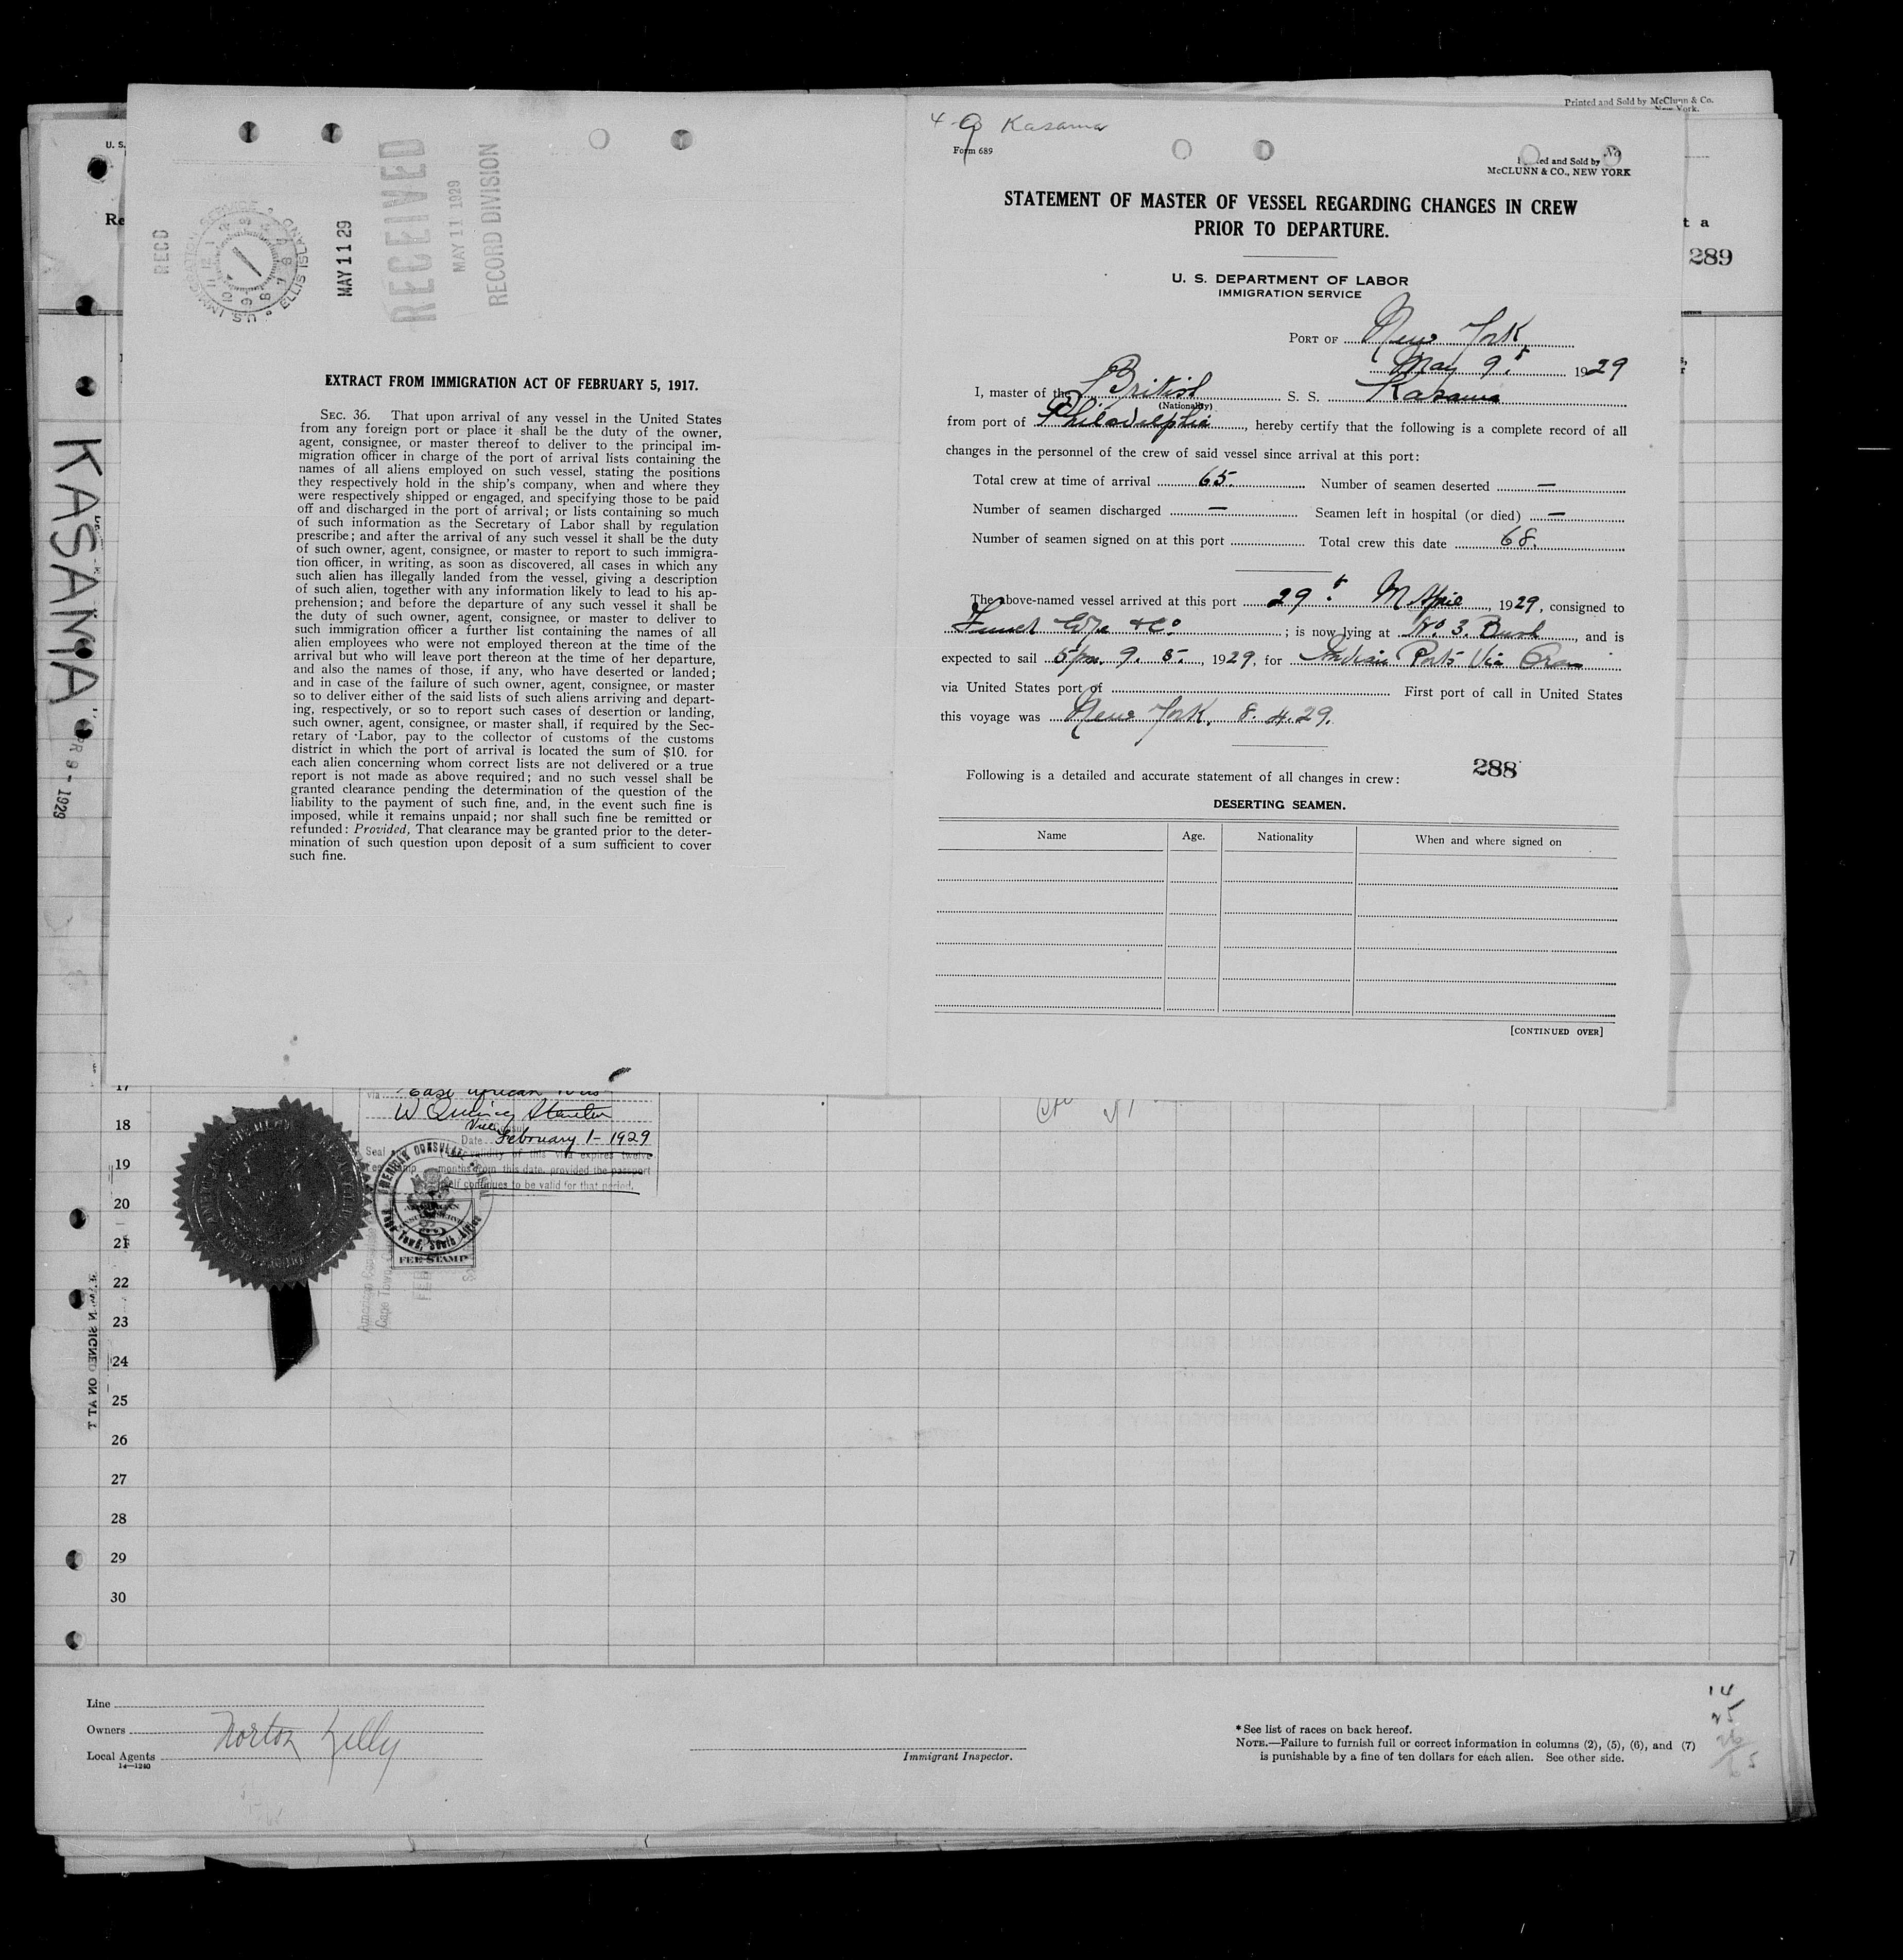 Printed and Sold by McClunn & Co.
New York.
U. S.
Re
t a
289
KASAMA
1929
RECD
U.S. IMMIGRATION SERVICE
ELLIS ISLAND
MAY 11 29
RECEIVED
MAY 11 1929
RECORD DIVISION
EXTRACT FROM IMMIGRATION ACT OF FEBRUARY 5, 1917.
SEC. 36. That upon arrival of any vessel in the United States
from any foreign port or place it shall be the duty of the owner,
agent, consignee, or master thereof to deliver to the principal im-
migration officer in charge of the port of arrival lists containing the
names of all aliens employed on such vessel, stating the positions
they respectively hold in the ship's company, when and where they
were respectively shipped or engaged, and specifying those to be paid
off and discharged in the port of arrival; or lists containing so much
of such information as the Secretary of Labor shall by regulation
prescribe; and after the arrival of any such vessel it shall be the duty
of such owner, agent, consignee, or master to report to such immigra-
tion officer, in writing, as soon as discovered, all cases in which any
such alien has illegally landed from the vessel, giving a description
of such alien, together with any information likely to lead to his ap-
prehension; and before the departure of any such vessel it shall be
the duty of such owner, agent, consignee, or master to deliver to
such immigration officer a further list containing the names of all
alien employees who were not employed thereon at the time of the
arrival but who will leave port thereon at the time of her departure,
and also the names of those, if any, who have deserted or landed;
and in case of the failure of such owner, agent, consignee, or master
so to deliver either of the said lists of such aliens arriving and depart-
ing, respectively, or so to report such cases of desertion or landing,
such owner, agent, consignee, or master shall, if required by the Sec-
retary of Labor, pay to the collector of customs of the customs
district in which the port of arrival is located the sum of $10. for
each alien concerning whom correct lists are not delivered or a true
report is not made as above required; and no such vessel shall be
granted clearance pending the determination of the question of the
liability to the payment of such fine, and, in the event such fine is
imposed, while it remains unpaid; nor shall such fine be remitted or
refunded: Provided, That clearance may be granted prior to the deter-
mination of such question upon deposit of a sum sufficient to cover
such fine.
4-9 Kasama
Form 689
and Sold by
McCLUNN & CO., NEW YORK
STATEMENT OF MASTER OF VESSEL REGARDING CHANGES IN CREW
PRIOR TO DEPARTURE.
U. S. DEPARTMENT OF LABOR
IMMIGRATION SERVICE
PORT OF New York
May 9. 1929
I, master of the British S. S. Kasama
(Nationality)
from port of Philadelphia, hereby certify that the following is a complete record of all
changes in the personnel of the crew of said vessel since arrival at this port:
Total crew at time of arrival 65. Number of seamen deserted —
Number of seamen discharged — Seamen left in hospital (or died) —
Number of seamen signed on at this port Total crew this date 68.
The above-named vessel arrived at this port 29 April, 1929, consigned to
Funch Edye & Co; is now lying at No. 3. Bush, and is
expected to sail 5pm. 9. 5., 1929, for Indian Ports Via Oran
via United States port of First port of call in United States
this voyage was New York. 8. 4. 29.
288
Following is a detailed and accurate statement of all changes in crew:
DESERTING SEAMEN.
Name Age. Nationality When and where signed on
[CONTINUED OVER]
17
via East African Ports
W Quincy Stanton
Vice Consul
Date February 1- 1929
Seal validity of this visa expires twelve
months from this date, provided the passport
itself continues to be valid for that period.
AMERICAN CONSULATE GENERAL
Cape Town, South Africa
FEE STAMP
Cape Town
FEB
18
19
20
21
22
23
24
25
26
27
28
29
30
Line
Owners
Norton Lilly
Local Agents
14—1240
Immigrant Inspector.
* See list of races on back hereof.
NOTE.—Failure to furnish full or correct information in columns (2), (5), (6), and (7)
is punishable by a fine of ten dollars for each alien. See other side.
14